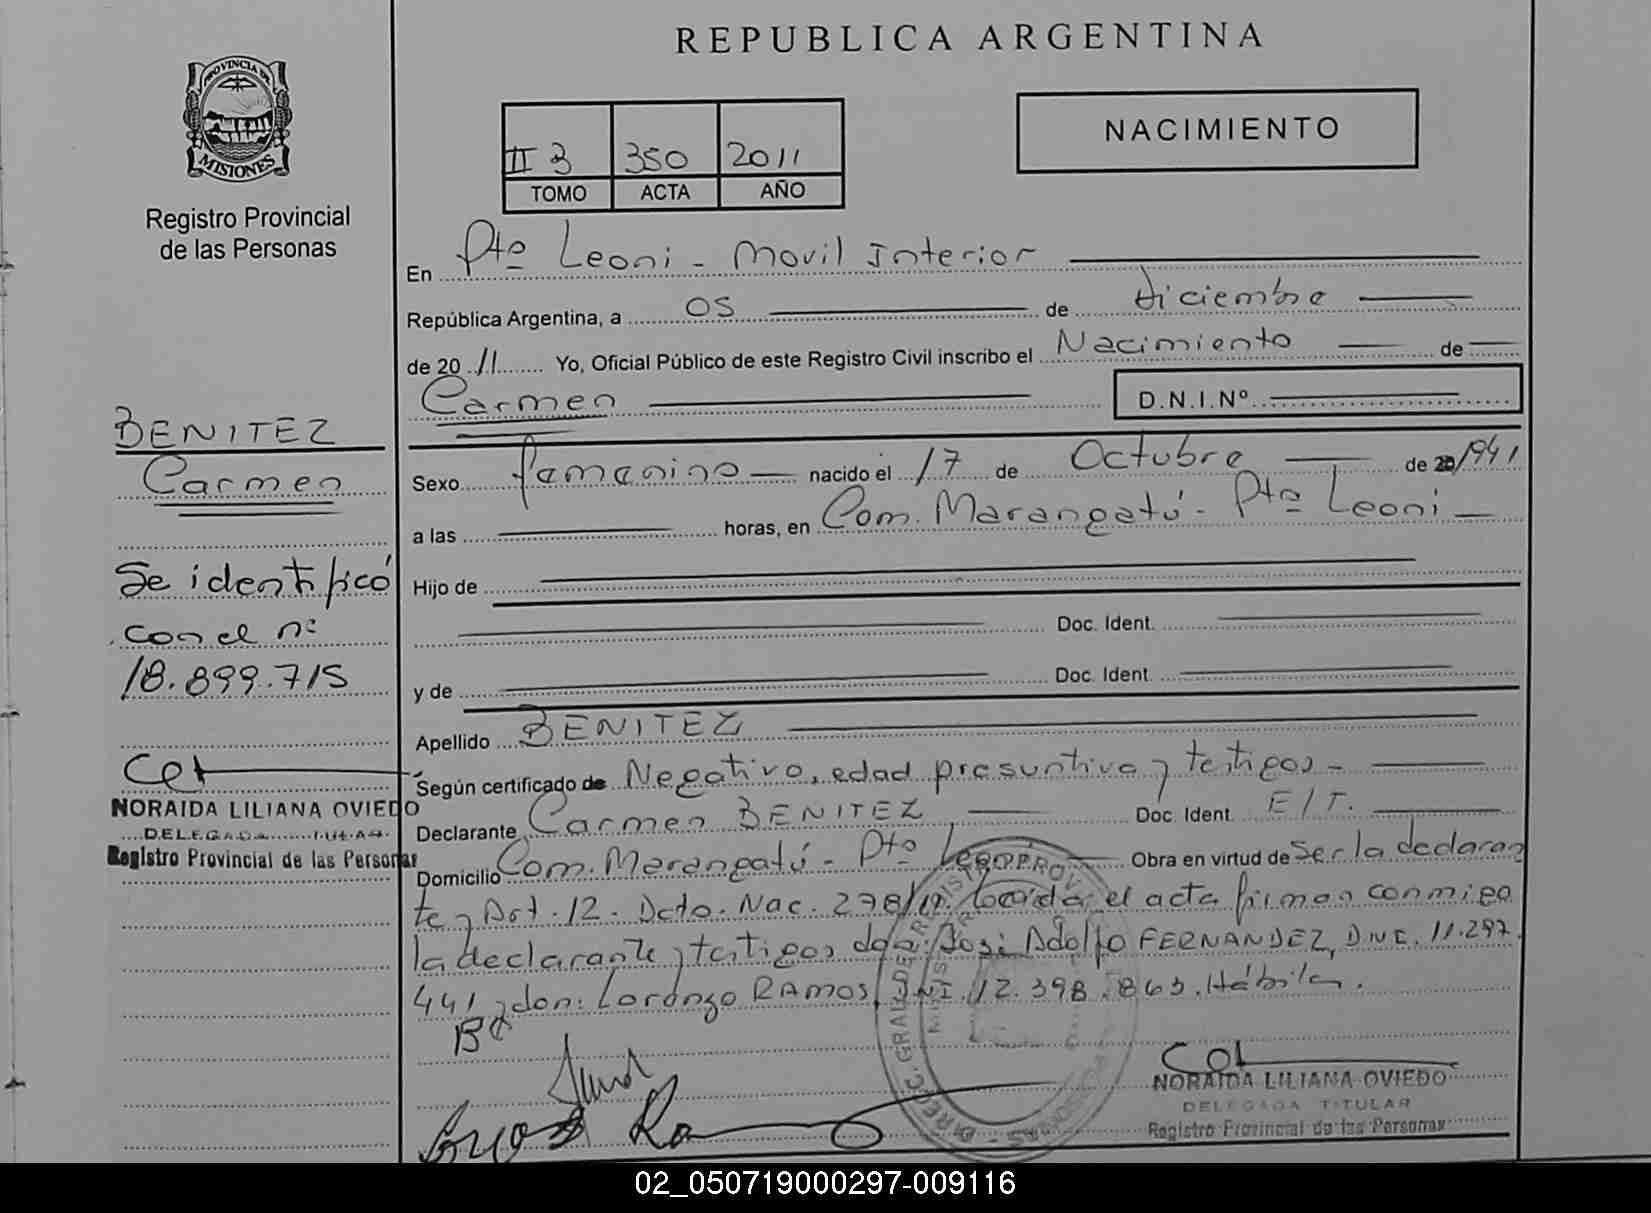 REPUBLICA ARGENTINA
PROVINCIA DE
MISIONES
Registro Provincial
de las Personas
NACIMIENTO
II 3 350 2011
TOMO ACTA AÑO
En Pto Leoni - Movil Interior
República Argentina, a 05 de diciembre
de 20 11 Yo, Oficial Público de este Registro Civil inscribo el Nacimiento de
Carmen D.N.I.Nº
BENITEZ
Carmen
Se identificó
con el nº
18.899.715
NORAIDA LILIANA OVIEDO
DELEGADA TITULAR
Registro Provincial de las Personas
Sexo femenino nacido el 17 de Octubre de 20 1941
a las horas, en Com. Marangatú - Pto Leoni
Hijo de
Doc. Ident.
y de Doc. Ident.
Apellido BENITEZ
Según certificado de Negativo, edad presuntiva y testigos -
Declarante Carmen BENITEZ Doc. Ident. E/T.
Domicilio Com. Marangatú - Pto Leoni Obra en virtud de Ser la declaran
te y Art. 12. Dcto. Nac. 278/11. Leída el acta firman conmigo
la declarante y testigos don: José Adolfo FERNANDEZ, DNI. 11.297.
441 y don: Lorenzo RAMOS, DNI. 12.398.863. Hábiles.
BC
NORAIDA LILIANA OVIEDO
DELEGADA TITULAR
Registro Provincial de las Personas
02_050719000297-009116